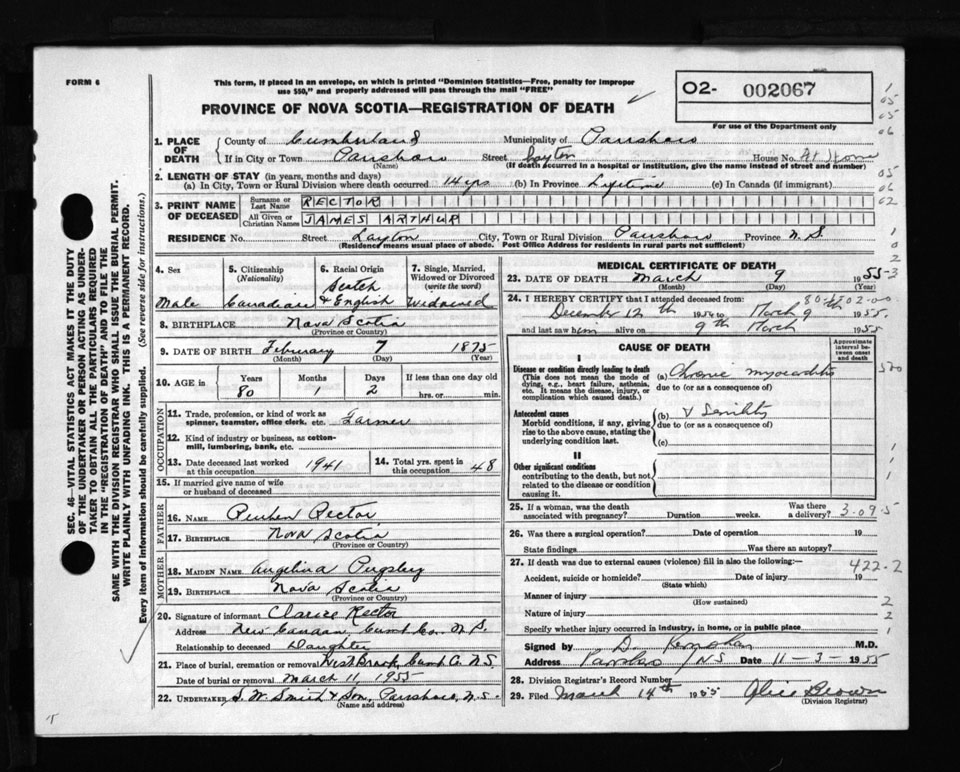 FORM 6
This form, if placed in an envelope, on which is printed "Dominion Statistics—Free, penalty for improper
use $50," and properly addressed will pass through the mail "FREE"
PROVINCE OF NOVA SCOTIA—REGISTRATION OF DEATH
02- 002067
For use of the Department only
1. PLACE OF DEATH
County of Cumberland Municipality of Parrsboro
If in City or Town Parrsboro Street Layton House No. At Home
(Name) (If death occurred in a hospital or institution, give the name instead of street and number)
2. LENGTH OF STAY (in years, months and days)
(a) In City, Town or Rural Division where death occurred 14 yrs (b) In Province Lifetime (c) In Canada (if immigrant)
3. PRINT NAME OF DECEASED
Surname or Last Name RECTOR
All Given or Christian Names JAMES ARTHUR
RESIDENCE No. Street Layton City, Town or Rural Division Parrsboro Province N.S.
(Residence means usual place of abode. Post Office Address for residents in rural parts not sufficient)
4. Sex Male
5. Citizenship (Nationality) Canadian
6. Racial Origin Scotch & English
7. Single, Married, Widowed or Divorced (write the word) Widowed
8. BIRTHPLACE Nova Scotia
(Province or Country)
9. DATE OF BIRTH February 7 1875
(Month) (Day) (Year)
10. AGE in Years Months Days If less than one day old
80 1 2 hrs. or min.
OCCUPATION
11. Trade, profession, or kind of work as
spinner, teamster, office clerk, etc. Farmer
12. Kind of industry or business, as cotton-
mill, lumbering, bank, etc.
13. Date deceased last worked at this occupation 1941
14. Total yrs. spent in this occupation 48
15. If married give name of wife
or husband of deceased
FATHER
16. NAME Reuben Rector
17. BIRTHPLACE Nova Scotia
(Province or Country)
MOTHER
18. MAIDEN NAME Angelina Pugsley
19. BIRTHPLACE Nova Scotia
(Province or Country)
20. Signature of informant Clarice Rector
Address New Canaan, Cumb. Co. N.S.
Relationship to deceased Daughter
21. Place of burial, cremation or removal West Brook, Cumb Co. N.S.
Date of burial or removal March 11, 1955
22. UNDERTAKER S. W. Smith & Son, Parrsboro, N.S.
(Name and address)
MEDICAL CERTIFICATE OF DEATH
23. DATE OF DEATH March 9 1955
(Month) (Day)
24. I HEREBY CERTIFY that I attended deceased from:
December 12th 1954 to March 9 1955
and last saw him alive on 9th March 1955
CAUSE OF DEATH
Approximate interval between onset and death
I
Disease or condition directly leading to death
(This does not mean the mode of dying, e.g., heart failure, asthenia, etc. It means the disease, injury, or complication which caused death.)
(a) Chronic myocarditis
due to (or as a consequence of)
Antecedent causes
Morbid conditions, if any, giving rise to the above cause, stating the underlying condition last.
(b) Senility
due to (or as a consequence of)
(c)
II
Other significant conditions
contributing to the death, but not related to the disease or condition causing it.
25. If a woman, was the death associated with pregnancy? Duration weeks. Was there a delivery?
3-09-5
26. Was there a surgical operation? Date of operation 19
State findings Was there an autopsy?
27. If death was due to external causes (violence) fill in also the following:—
422-2
Accident, suicide or homicide? Date of injury 19
(State which)
Manner of injury
(How sustained)
Nature of injury
Specify whether injury occurred in industry, in home, or in public place
Signed by D. M.D.
Address Parrsboro NS Date 11-3-1955
28. Division Registrar's Record Number
29. Filed March 14th 1955 Alice Brown
(Division Registrar)
SEC. 46—VITAL STATISTICS ACT MAKES IT THE DUTY
OF THE UNDERTAKER OR PERSON ACTING AS UNDER-
TAKER TO OBTAIN ALL THE PARTICULARS REQUIRED
IN THE "REGISTRATION OF DEATH" AND TO FILE THE
SAME WITH THE DIVISION REGISTRAR WHO SHALL ISSUE THE BURIAL PERMIT.
WRITE PLAINLY WITH UNFADING INK. THIS IS A PERMANENT RECORD.
Every item of Information should be carefully supplied. (See reverse side for instructions.)